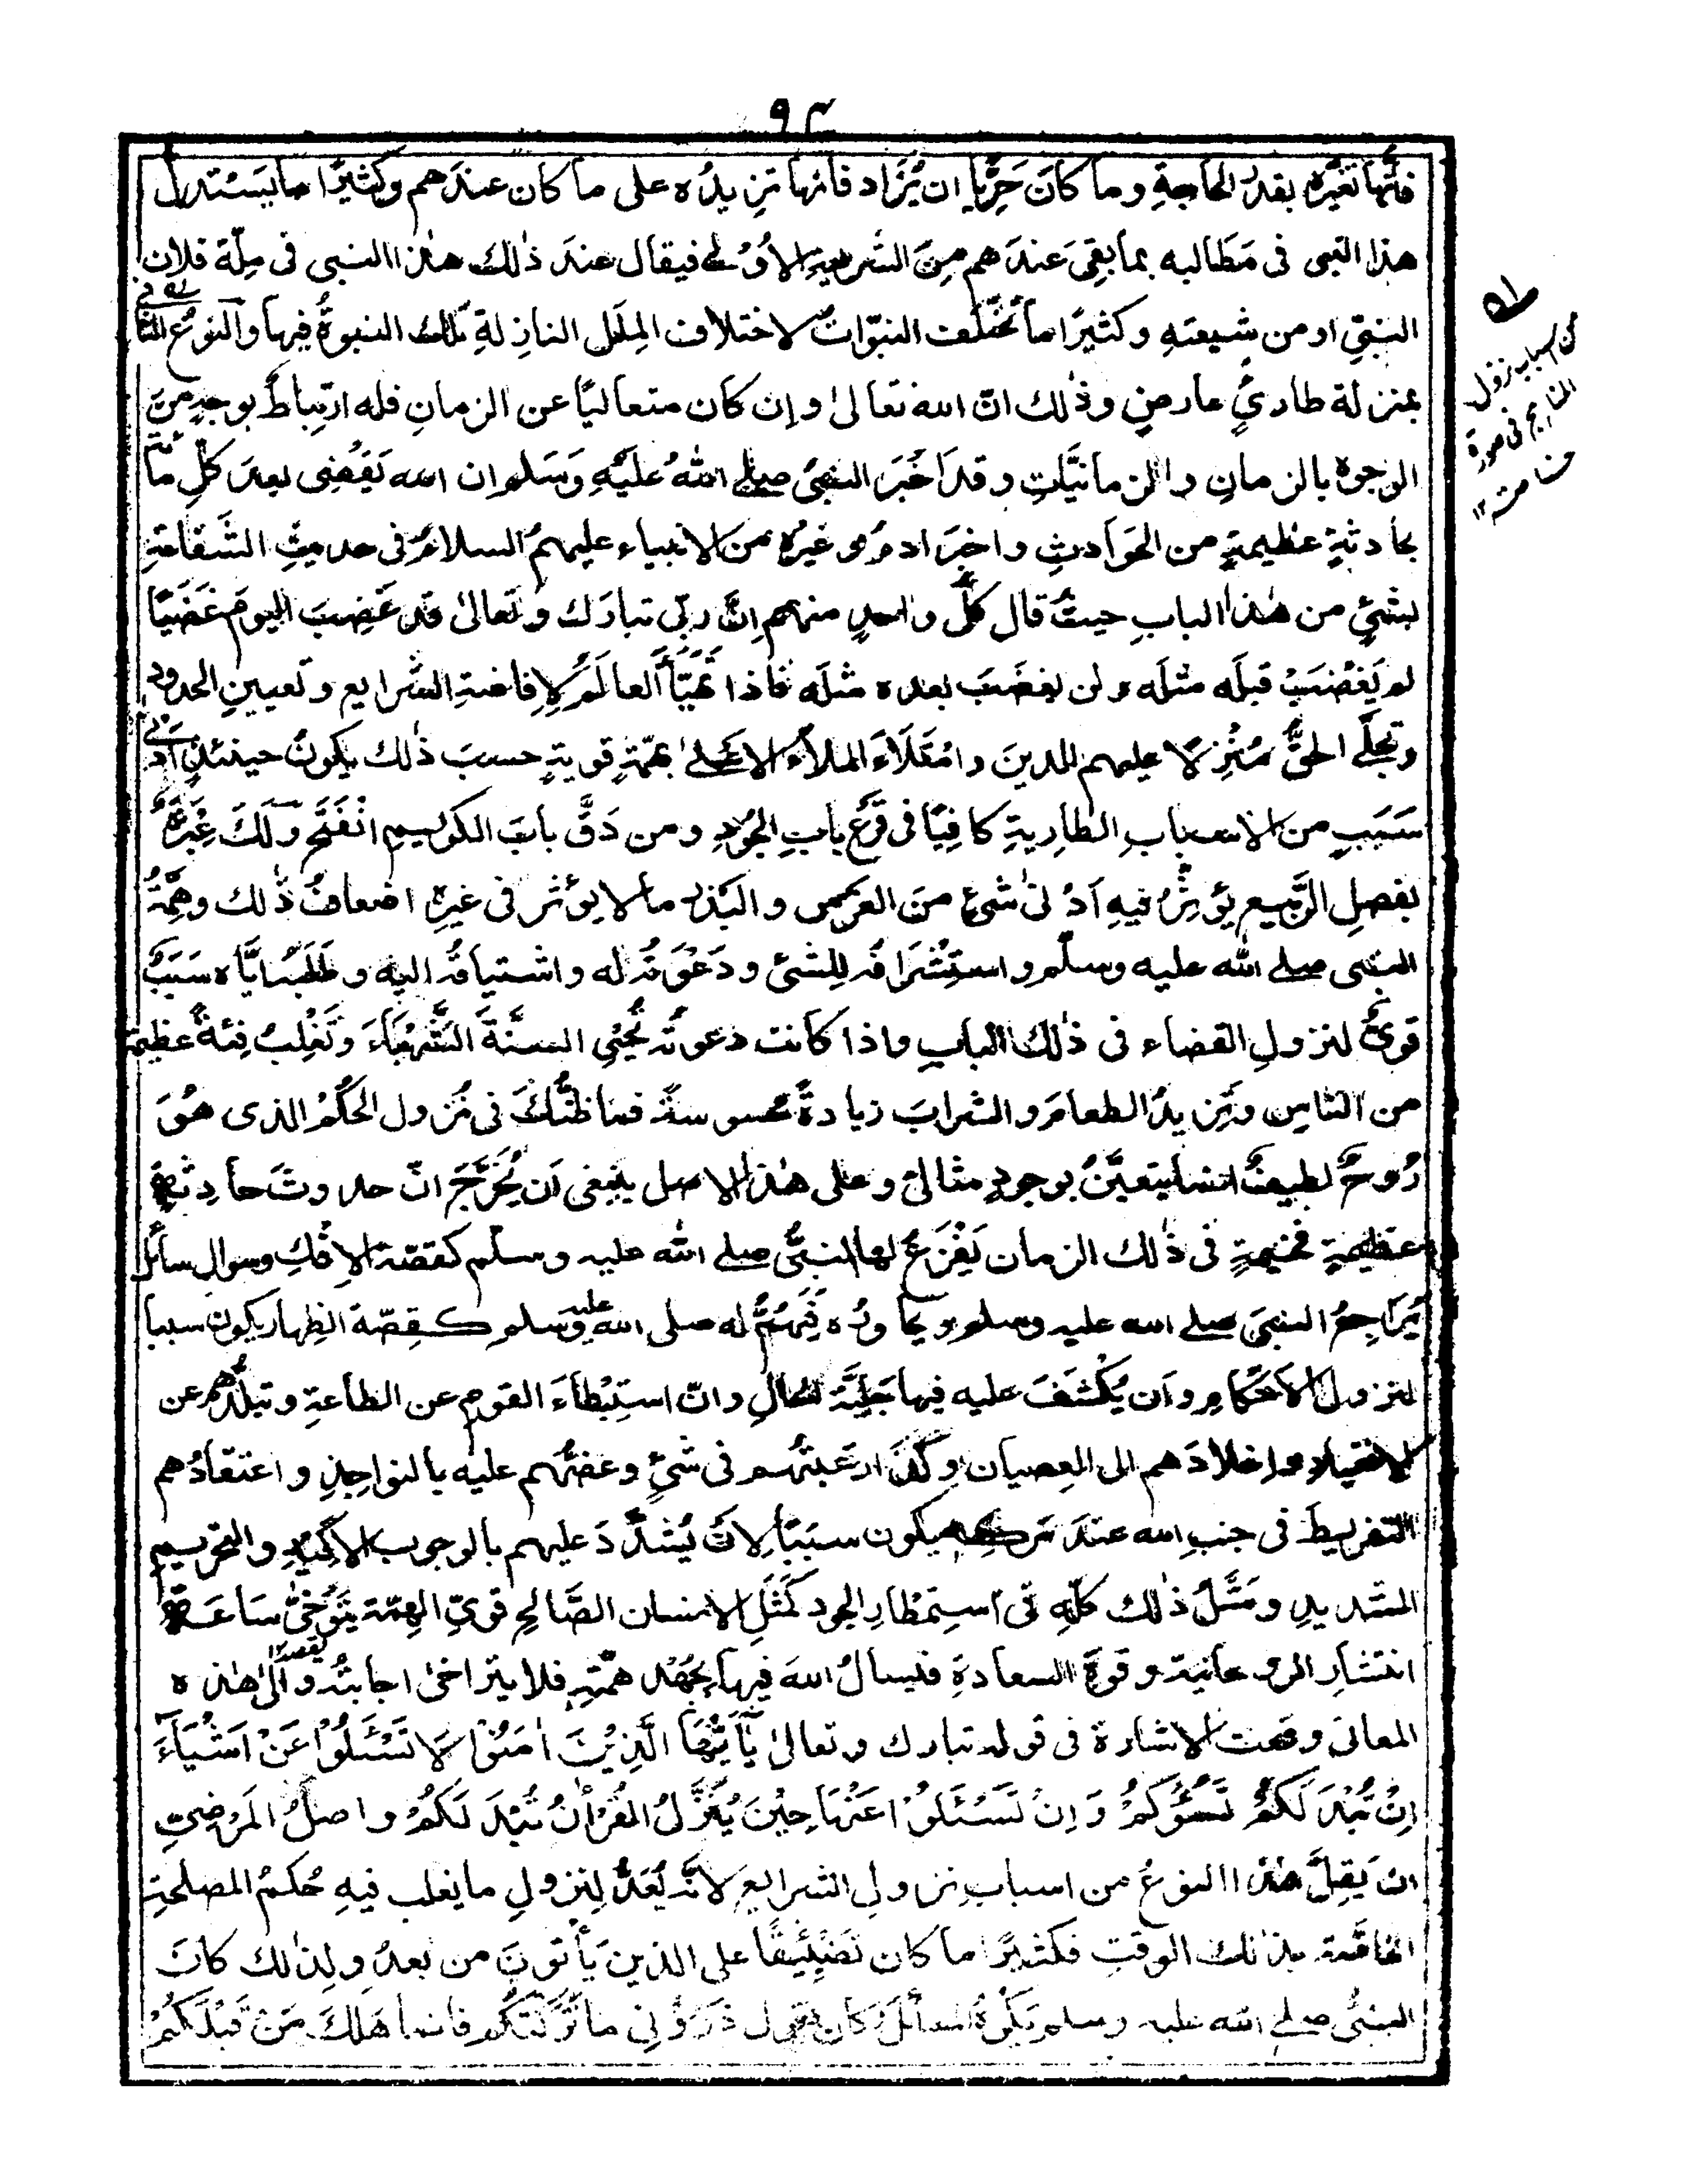 ٩٤
فانّها تغيّره بقدر الحاجةِ وما كانَ حَرِيًّا ان يُّزاد فانّها تزيدُه على ما كان عندَهم وكثيرًا ما يستدل
هذا النبى فى مَطَالبه بما بقِىَ عندَهم مِنَ الشريعةِ الاُوْلٰے فيقال عندَ ذٰلك هٰذا النبى فى مِلّة فلان
النبىّ او من شِيعتهِ وكثيرًا ما تختلف النبوّاتُ لاختلاف المِلَلِ النازلةِ تلك النبوةُ فيها والنوعُ الثانى
بمنزلة طارىٍٔ عارضٍ وذٰلك انّ الله تعالىٰ وإن كان متعاليًا عن الزمانِ فله ارتِباطٌ بوجهٍ منَ
الوجوهِ بالزمانِ والزمانيّاتِ وقد اَخبَرَ النبىُّ صلے اللهُ عليْهِ وَسَلم ان الله يَقضِى بعدَ كلِّ مائةٍ
بحادثةٍ عظيمةٍ من الحَوادثِ واخبرَ ادمُ وغيرُه من الانبياء عليهمُ السلامُ فى حديثِ الشَّفاعةِ
بشئٍ من هٰذا البابِ حيثُ قال كلُّ واحدٍ منهم اِنّ ربّى تبارَك وتَعالىٰ قد غَضِبَ اليومَ غَضَبًا
لم يَغْضَبْ قبلَه مثلَه ولن يغضَبَ بعده مثلَه فاذا تَهَيَّأَ العالَمُ لِاِفاضةِ الشّرايع وتعيينِ الحدود
وتجلّٰے الحقُّ مُنْزِلًا عليهم الدينَ وامْتَلَاَءَ الملأُ الاعلےٰ بهمّةٍ قويةٍ حسبَ ذٰلك يكونُ حينئذٍ اَدنٰى
سَبَبٍ من الاسبابِ الطاريةِ كافِيًا فى قَرْعِ بابِ الجُودِ ومن دَقَّ بابَ الكريم انْفَتَحَ ولَكَ عِبْرَةٌ
بفصلِ الرَّبيع يؤثِّرُ فيهِ اَدْنىٰ شئٍ منَ الغرسِ والبَذرِ ما لا يؤثر فى غيرِه اضعافُ ذٰلك وهِمّةُ
النبى صلے الله عليه وسلّم واستِشْرافُه للشئ ودَعْوَتُه له واشتياقُه اليه وطَلَبُه ايّاه سَبَبٌ
قوىٌّ لنزولِ القضاء فى ذٰلك البابِ واذا كانت دَعوتُه تُحْيِى السنَةَ الشَّهْباءَ وتَغْلِبُ فِئةً عظيمة
من النّاسِ وتَزيدُ الطعامَ والشرابَ زيادةً محسوسةً فما ظنُّكَ فى نُزول الحُكمْ الذى هُوَ
رُوحٌ لطيفٌ انما يتعيَّنُ بوجودٍ مثالىّ وعلى هٰذا الاصل ينبغى اَن يُخَرَّجَ انّ حدوثَ حادِثةٍ
عظيمةٍ فخيمةٍ فى ذٰلك الزمان يَفْزَعُ لها النبىُّ صلے الله عليه وسلّم كقصّة الاِفْكِ وسوال سائل
يُرَاجِعُ النبىَ صلے الله عليه وسلم ويحاورُه فَيَهُمُّ له صلى الله عليه وسلم كقِصّة الظِهار يكون سببا
لنزول الاَحْكامِ واَن يُكشَفَ عليه فيها جَلِيّةُ الحالِ وانّ استِبْطاءَ القومِ عن الطاعةِ وتبلُّدَهم عن
الانقيادِ واِخلادَهم الى العِصيان وكَذا رَغبتُهم فى شئٍ وعضُّهم عليه بالنواجِذِ واعتقادُهم
التفريطَ فى جنبِ الله عندَ تركِه يكون سبَبًا لِاَن يُشدَّدَ عليهم بالوجوبِ الاَكِيدِ والتحريمِ
الشديدِ ومَثَلُ ذٰلك كلّهِ فى استِمْطارِ الجود كَمَثَلِ الانسان الصَّالحِ قوىِّ الهِمّة يَتَوَخّىٰ سَاعَةَ
انتشارِ الروحانية وقوةِ السعادةِ فيسالُ اللهَ فيها بجُهْدِ همّتِهٖ فلا يتراخىٰ اجابتُه والىٰ هٰذه
المعانى وقعت الاشارة فى قوله تبارك وتعالىٰ يٰٓاَيُّهَا الَّذِيْنَ اٰمَنُوْا لَا تَسْـَٔلُوْا عَنْ اَشْيَآءَ
اِنْ تُبْدَ لَكُمْ تَسُؤْكُمْ وَاِنْ تَسْـَٔلُوْا عَنْهَا حِيْنَ يُنَزَّلُ الْقُرْاٰنُ تُبْدَ لَكُمْ واصلُ المَرْضِىّ
ان يَقِلَّ هٰذا النوعُ من اسبابِ نزولِ الشرايع لانّه يُعَدُّ لِنزولِ ما يغلب فيهِ حُكمُ المصلحةِ
الخاصّة بذٰلك الوقتِ فكثيرًا ما كان تَضْيِيْقًا على الذين يَأْتونَ من بعدُ ولِذٰلك كانَ
النبىُّ صلے الله عليه وسلم يَكْرَهُ المسائلَ كان يقول ذَرُوْنِى ما تَرَكْتُكُم فانما هَلَكَ مَنْ قبْلَكُمْ
من اسباب نزول
المناهج فى صورة
خاصة ١٢